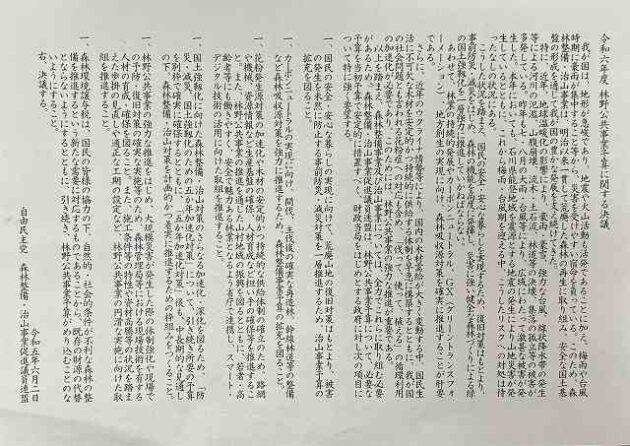 令和六年度 林野公共事業予算に関する決議
我が国は、地形が急峻であり、地震や火山活動も活発であることに加え、梅雨や台風
時期に集中豪雨が発生
森林整備・治山事業は、明治以来一貫して荒廃した森林の再生に取り組み、安全な国土基
盤の形成を通じて我が国の豊かな発展を支え続けてきた。
特に、近年、地球温暖化の影響により、豪雨、豪雪、強力な台風、線状降水帯の発生
多発している。昨年も七・八月の大雨・台風等により、広域にわたって激甚な被害が発
生した。本年においても、石川県能登地域を震度とする地震の発生により山地災害が発
生している
ったなしの状況にある。
こうした状況を踏まえ、国民の安全・安心な暮らしを実現するため、復旧対策はもとより、
事前防災・減災をはじめ、森林の機能を高度に発揮し、災害に強い健全な森林づくりによる緑
の国土強靱化を強力に推進していかねばならない。
ーメーション）、地方創生の実現に向け、森林吸収源対策を確実に実施することが肝要
である。
さらに、近時のウクライナ情勢等により、国内の木材需給が大きく変動する中、国民生
活に不可欠な木材を安定的かつ持続的に供給する体制を早急に構築するとともに、我が国
の社会問題とも言われる花粉症への対応も含め、「伐って、使って、植える」の循環利用
の加速化が必要であり、このためには、林野公共事業の強力な推進が重要である。
以上を踏まえ、国民の安全・安心の確保、森林資源の循環利用に向け
があることから、森林整備・治山事業促進議員連盟は、林野公共事業予算について、必要な
予算を当初予算で安定的に措置すべく、財政当局をはじめとする政府に対し次の項目に
ついて特に強く要望する。
一、国民の安全・安心な暮らしの実現に向けて、荒廃山地の復旧対策はもとより、被害
の発生を未然に防止する事前防災・減災対策を一層推進するため、治山事業予算の
拡充を図ること。
一、カーボンニュートラルの実現に向け、間伐、主伐後の確実な再造林、幹線林道等の整備
など森林吸収源対策を強力に推進するため、森林整備事業予算の拡充を図ること。
一、花粉発生源対策の加速化や木材の安定的かつ持続的な供給体制の確立のため、路網
や機械、資源情報など生産基盤の確保、人材育成など担い手の確保等を推進すること。
と。また、林業の成長産業化と山村地域の振興を図るとともに、若者・高
齢者等にも働きやすく、安全で魅力ある林業となるよう省庁で連携し、スマート・
デジタル技術の活用に向けた取組を推進すること。
一、国土強靱化に向けた森林整備・治山対策のさらなる加速化・深化を図るため、「防
災・減災、国土強靱化のための五か年加速化対策」について、引き続き所要の予算
を別枠で確実に確保するとともに、「五か年加速化対策」後も、中長期的な見通し
の下、森林整備・治山対策を計画的かつ着実に推進するための枠組みをつくること。
一、林野公共事業の強力な推進をはじめ、大規模災害が発生した際の体制強化や現場で
の予防・復旧対策の確実な実施のため、森林管理局等における現場技術を有する
人材の育成・確保を図ること。また、施工条件等の特性や資材高騰等の状況を踏ま
えた歩掛の見直しや適正な工期の設定など、林野公共事業の円滑な実施に向けた取
組を推進すること。
一、森林環境譲与税は、国民の皆様の協力の下、自然的・社会的条件が不利な森林の整
備を推進するという新たな需要に対応するものであることから、既存の財源の代替
とならないようにするとともに、引き続き、林野公共事業予算がめり込むことのな
いようにすること。
右、決議する。
令和五年六月二日
自由民主党 森林整備・治山事業促進議員連盟